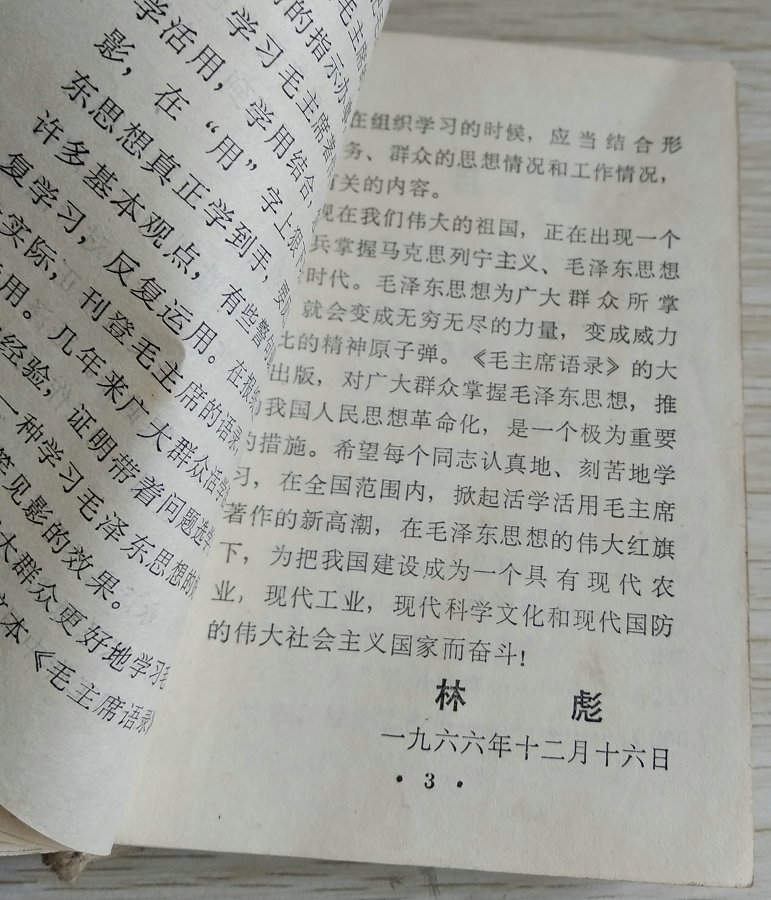 毛主席
的指示办事
学习毛主席著
学活用，学用结合，
影，在“用”字上狠
东思想真正学到手，要
许多基本观点，有些警句
复学习，反复运用。在报
实际，刊登毛主席的语录
用。几年来广大群众活学
经验，证明带着问题选学
一种学习毛泽东思想的
见影的效果。
大群众更好地学习毛
本《毛主席语录》
在组织学习的时候，应当结合形
务、群众的思想情况和工作情况，
有关的内容。
现在我们伟大的祖国，正在出现一个
兵掌握马克思列宁主义、毛泽东思想
时代。毛泽东思想为广大群众所掌
就会变成无穷无尽的力量，变成威力
比的精神原子弹。《毛主席语录》的大
出版，对广大群众掌握毛泽东思想，推
动我国人民思想革命化，是一个极为重要
的措施。希望每个同志认真地、刻苦地学
习，在全国范围内，掀起活学活用毛主席
著作的新高潮，在毛泽东思想的伟大红旗
下，为把我国建设成为一个具有现代农
业，现代工业，现代科学文化和现代国防
的伟大社会主义国家而奋斗！
林 彪
一九六六年十二月十六日
·3·